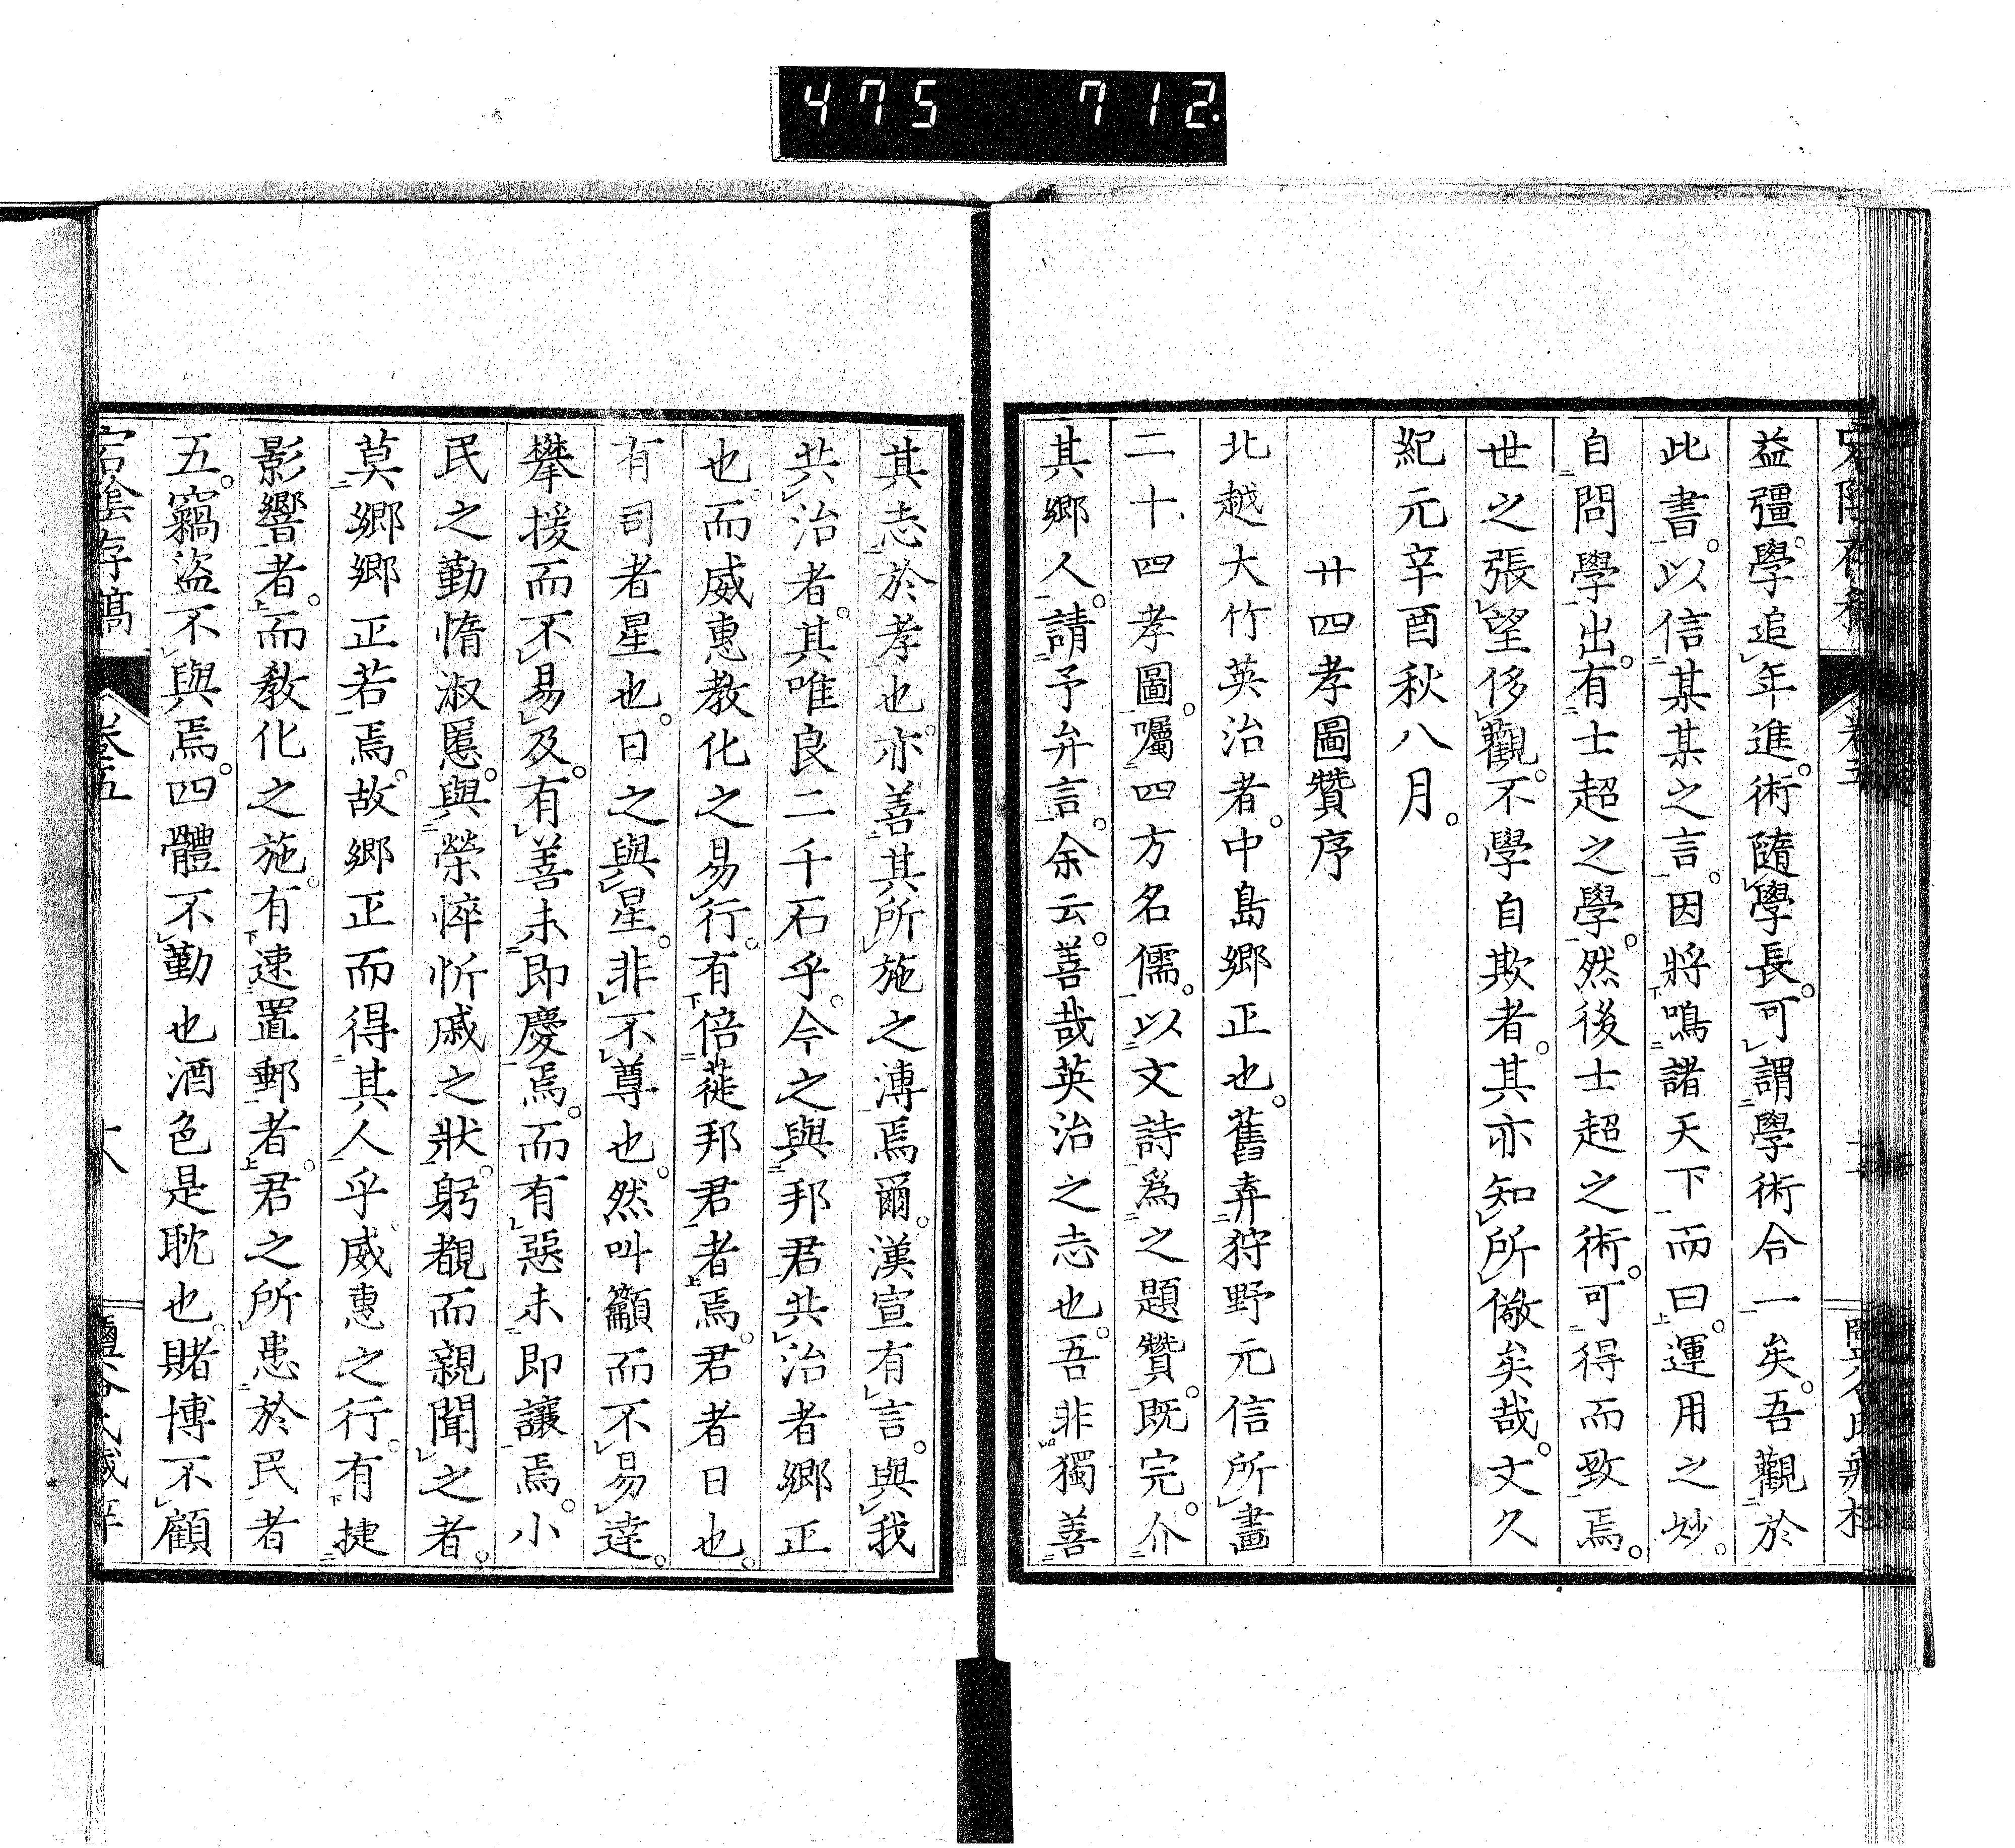 475 712
益彊。學追年進。術隨學長。可謂學術合一矣。吾觀於
此書。以信某某之言。因將鳴諸天下而曰。運用之妙。
自問學出。有士超之學。然後士超之術。可得而致焉。
世之張望侈觀。不學自欺者。其亦知所儆矣哉。文久
紀元辛酉秋八月。
廿四孝圖贊序
北越大竹英治者。中島鄉正也。舊弆狩野元信所畫
二十四孝圖。囑四方名儒。以文詩爲之題贊。既完。介
其鄉人。請予弁言。余云。善哉英治之志也。吾非獨善
其志於孝也。亦善其所施之溥焉爾。漢宣有言。與我
共治者。其唯良二千石乎。今之與邦君共治者鄉正
也。而威惠教化之易行。有倍蓰邦君者焉。君者日也。
有司者星也。日之與星。非不尊也。然叫籲而不易達。
攀援而不易及。有善未即慶焉。而有惡未即讓焉。小
民之勤惰淑慝。與榮悴忻戚之狀。躬覩而親聞之者。
莫鄉鄉正若焉。故鄉正而得其人乎。威惠之行。有捷
影響者。而教化之施。有速置郵者。君之所患於民者
五。竊盜不與焉。四體不勤也酒色是耽也。賭博不顧
宕陰存稿 卷五